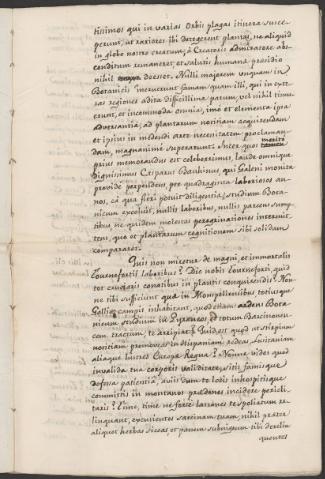 tissimos qui in varias Orbis plagas itinera susce-
perunt, ut rariores ibi detegerent plantas, ne aliquid
in globo nostro creatum, à Creatoris admiratione abs-
conditum remaneret, et saluti humanæ præsidio
nihil deesset. Nulli majorem unquam in
Botanicis meruerunt famam quam illi, qui in exte-
ras regiones aditu difficillima patrum, vel nihil timue-
runt, et incommoda omnia, imo et elementa ipsa
adversantia, ad plantarum notitiam acquirendam
et ipsius in medendi arte necessitatem proclaman-
dam, magnanimè superarunt. Inter quos merito
prius memorandus est celeberrimus, laude omnique
dignissimus Casparus Bauhinus, qui Galeni monita
prævidè perpendens, per quadraginta laboriosos an-
nos, eâ qua fieri potuit diligentia, studium Bota-
nicum excoluit, nullis laboribus, nullis parcens sump-
tibus ne quidem molestas peregrinationes intermit-
tens, quo et plantarum cognitionem sibi solidam
compararet.
Quis non miretur de magni, et immortalis
Tournefortii laboribus? Dic nobis Tournefort, quid
tot conatibus in plantis conquirendis? Non-
ne tibi sufficiunt quæ in Monspelliensibus totiusque
Galliæ campis inhabitant, quod etiam ardens Bota-
nicum studium in Pyrenæos, et totum Barcinonen-
sem tractum, te arripiat? Quid est quod
notitiam premens, in Hispaniam redeas, Lusitaniam
aliaque lustres Europæ Regna? Nonne vides quod
invalida tua corporis validitate, siti, famisque
patientia, assiduum te locis inhospitisque
committis in montanos prædones incidere pericli-
taris? Time, time ne forte latrones te spoliatum re-
linquant, excutientes sarcinam tuam, nihil præter
aliquot herbas siccas et panem subnigrum tibi derelin-
quentes